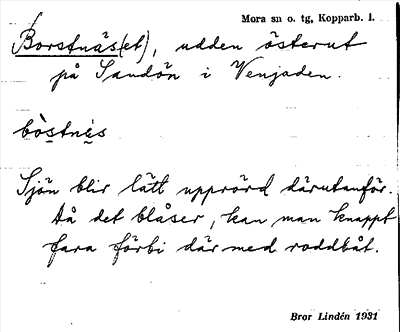 Mora sn o. tg, Kopparb. l.
Borstnäs(et), udden österut
på Sandön i Venjaden.
bòstnes
Sjön blir lätt upprörd därutanför.
Då det blåser, kan man knappt
fara förbi där med roddbåt.
Bror Lindén 1931